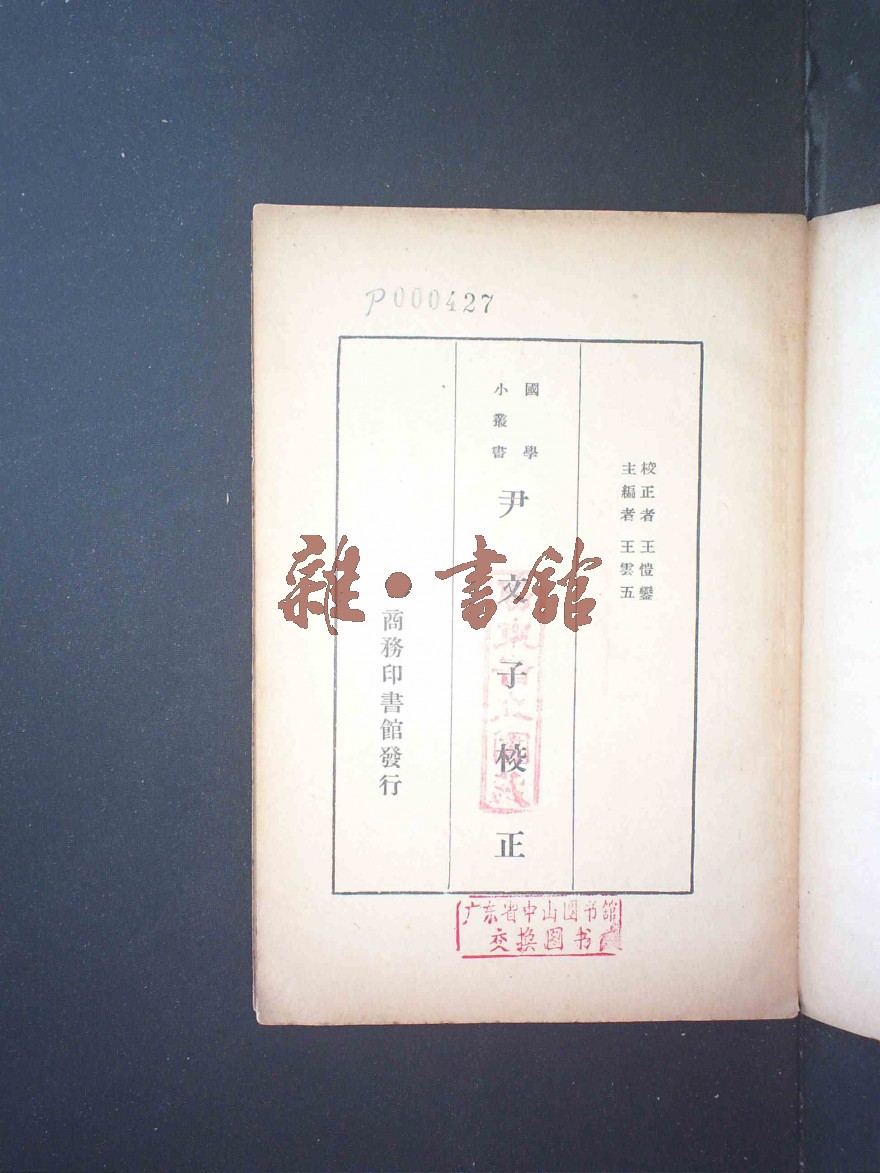 P000427
校正者 王愷鑾
主編者 王雲五
國學
小叢書
尹文子校正
商務印書館發行
雜·書館
广东省中山图书馆
交换图书